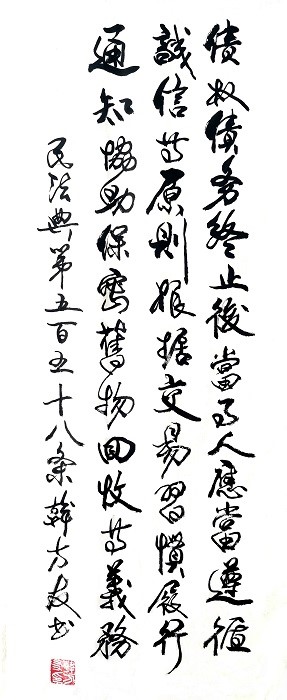 債权債務終止後當事人應當遵循
誠信等原則根据交易習慣履行
通知協助保密舊物回收等義務
民法典第五百五十八條韓方友书